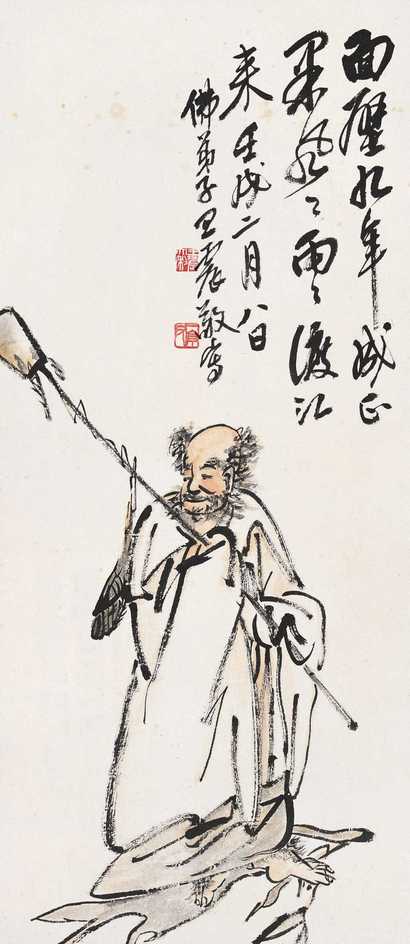 面壁九年成正
果風々雨々渡江
来壬戌二月八日
佛弟子王震敬写